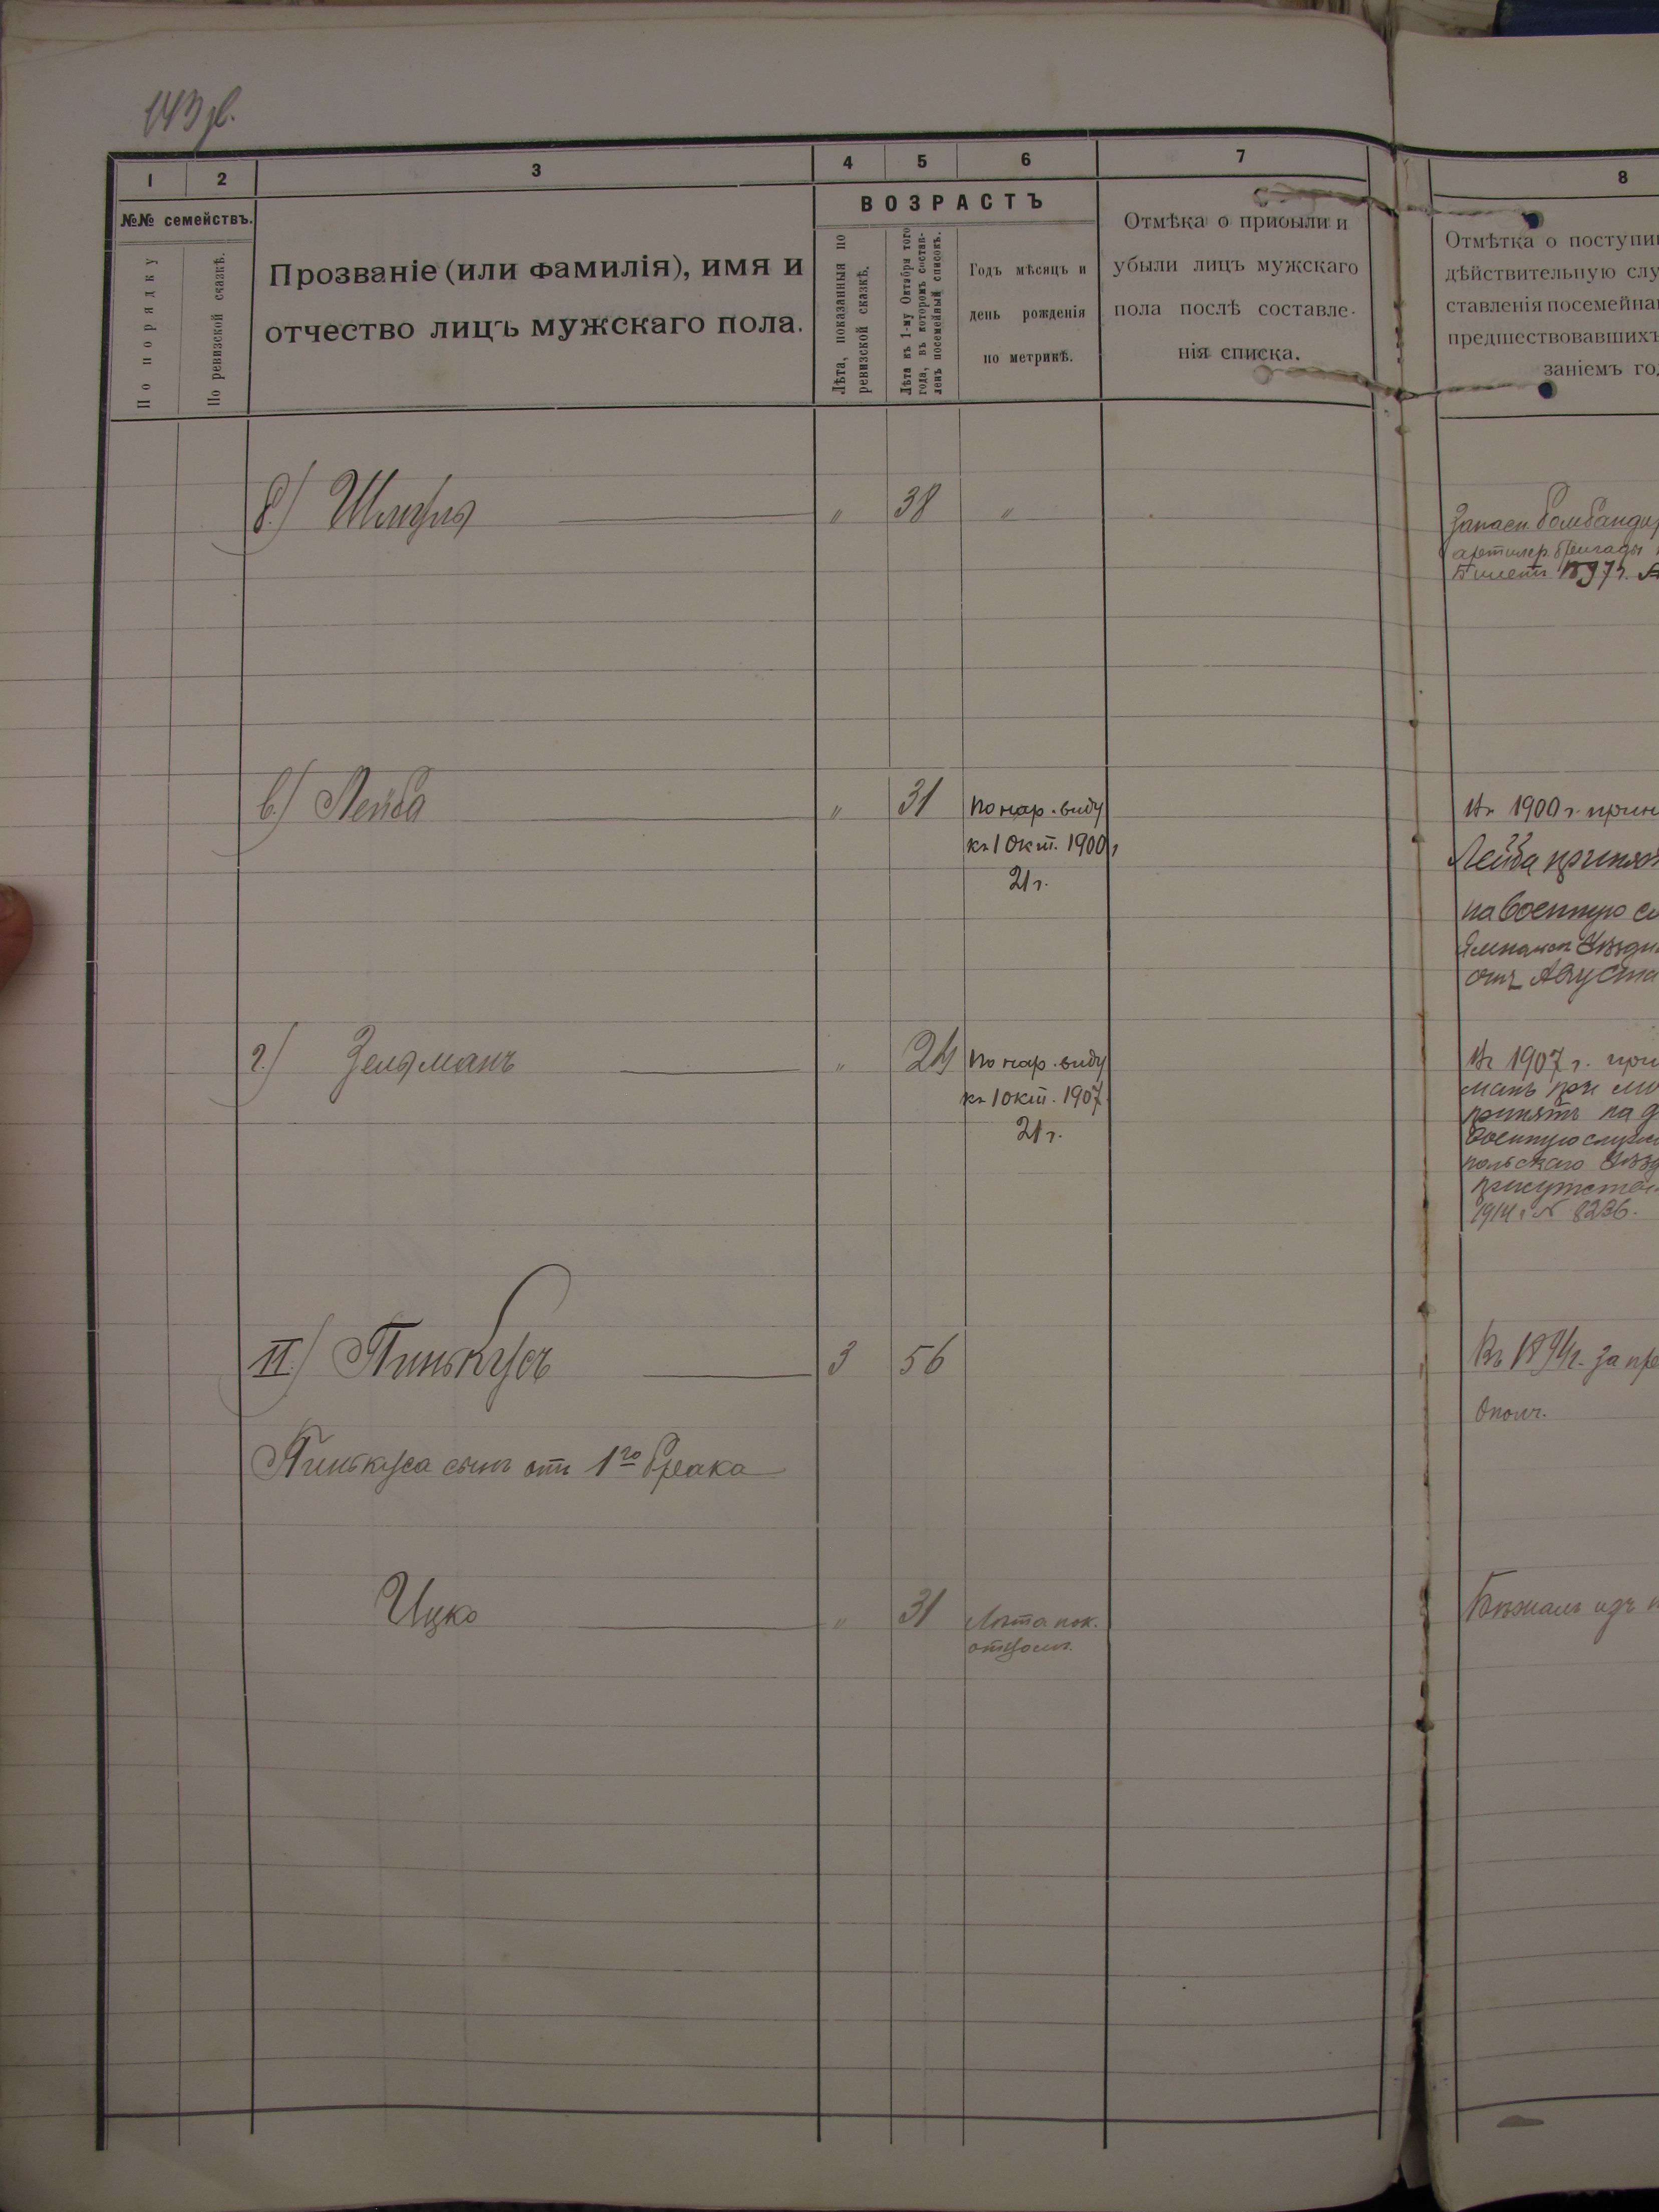 1 2 3 4 5 6 7 8
№№ семействъ.
По порядку
По ревизской сказкѣ.
Прозваніе (или фамилія), имя и
отчество лицъ мужскаго пола.
ВОЗРАСТЪ
Лѣта, показанныя по
ревизской сказкѣ.
Лѣта къ 1-му Октября того
года, въ которомъ состав-
ленъ посемейный списокъ.
Годъ мѣсяцъ и
день рожденія
по метрикѣ.
Отмѣка о прибыли и
убыли лицъ мужскаго
пола послѣ составле-
нія списка.
Отмѣтка о поступи
дѣйствительную слу
ставленія посемейна
предшествовавшихъ
заніемъ го
б.) Шмуль " 38 "
Запасн. бомбандир
артилер. бригады
Билетъ 1897 г.
в.) Лейба " 31 По нар. виду
къ 1 Окт. 1900 г
21 г.
Въ 1900 г. прин
Лейба принят
на военную с
отъ Августа
г.) Зельманъ " 24 По нар. виду
къ 1 окт. 1907
21 г.
Въ 1907 г. при
манъ при
принятъ на д
военную служ
польскаго Уѣзд
присутств
1914 г. № 8236.
II.) Пинькусъ 3 56
Въ 1894 г. за пр
Ополч.
Пинькуса сынъ отъ 1го брака
Ицко " 31 Лѣта пок.
отцомъ.
Бѣжалъ изъ